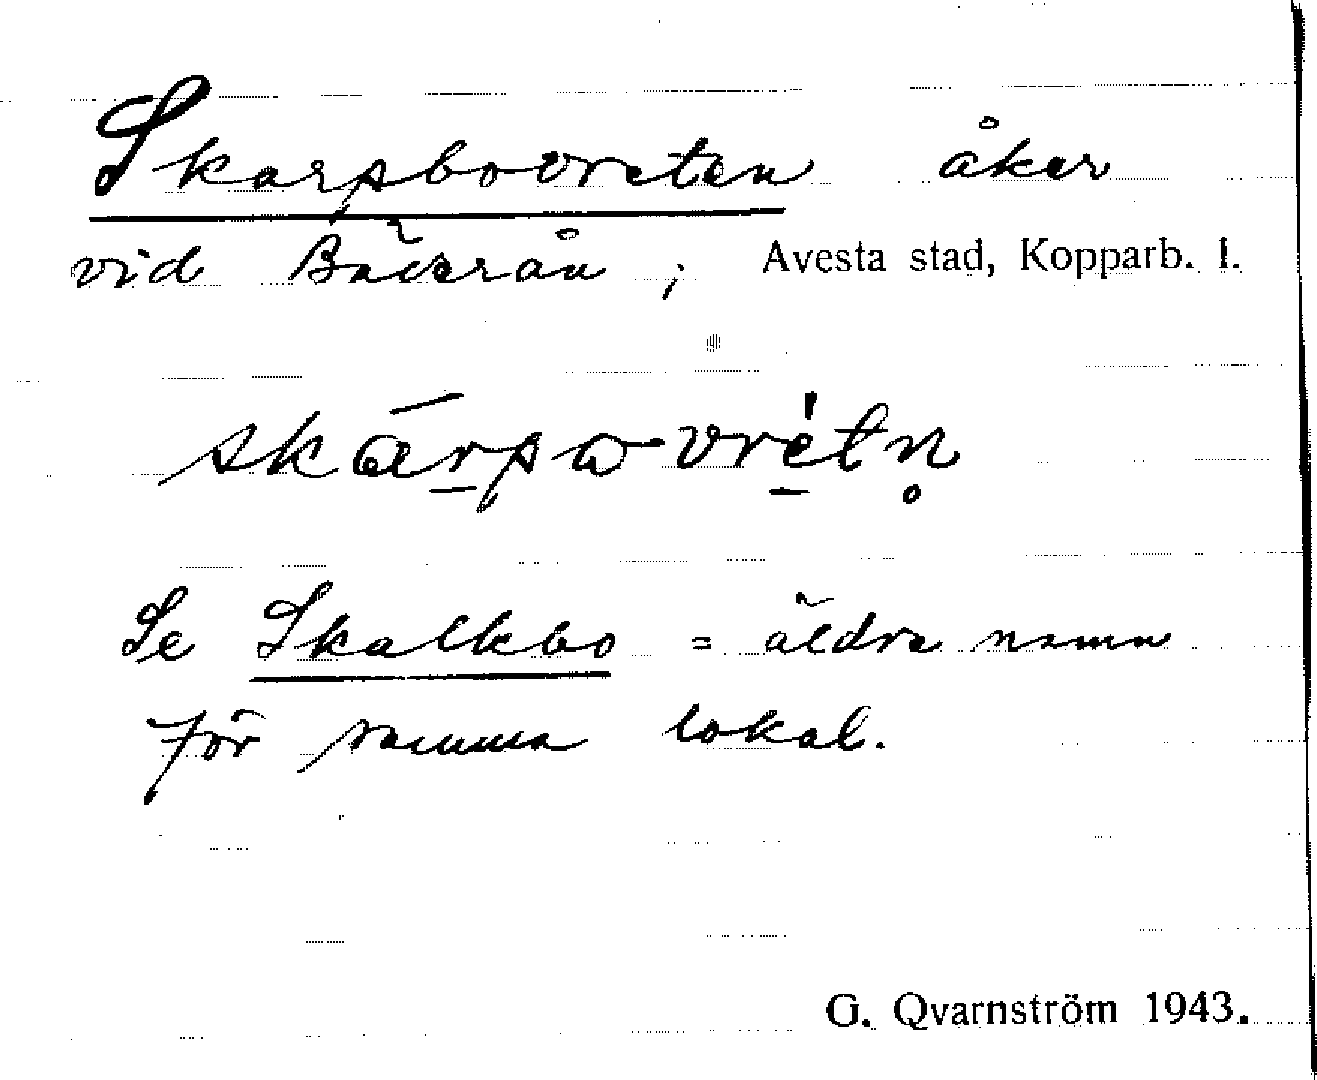 Skarpbovreten åker
vid Bäverån, Avesta stad, Kopparb. l.
skárpω-vrétn̥
Se Skalkbo = äldre namn
för samma lokal.
G. Qvarnström 1943.